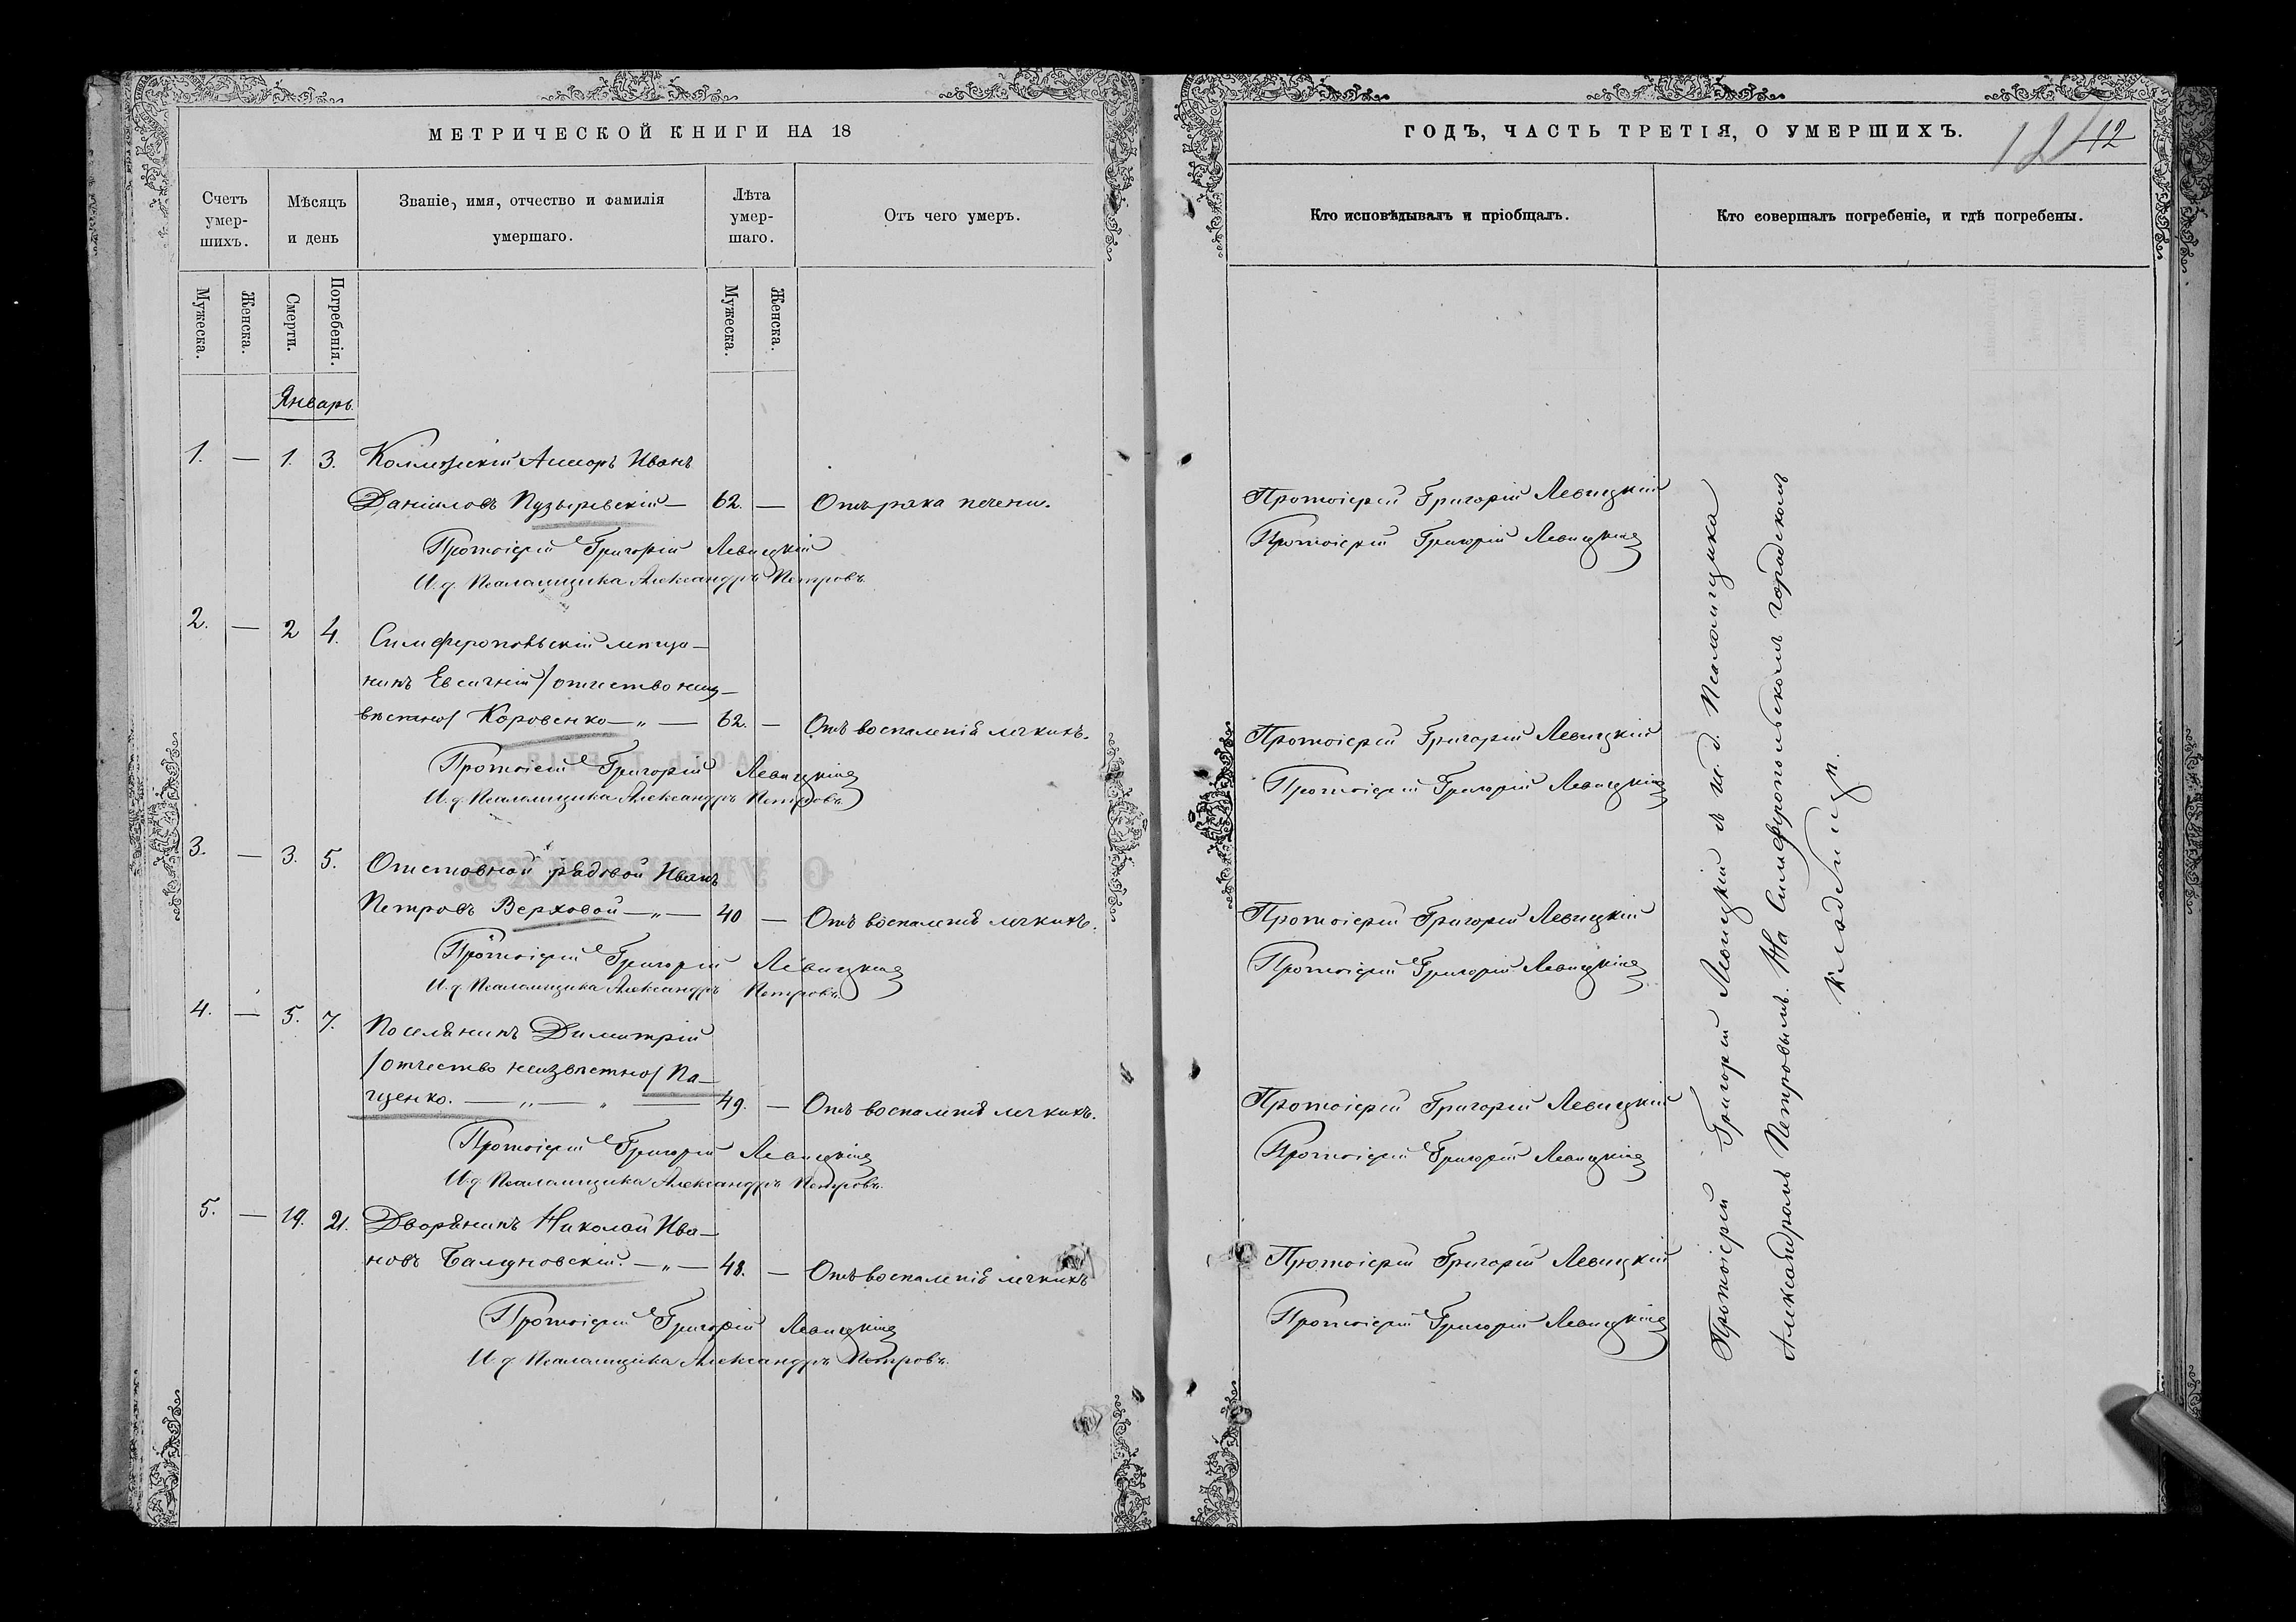 МЕТРИЧЕСКОЙ КНИГИ НА 18
Счетъ умер-шихъ.
Мѣсяцъ и день
Званіе, имя, отчество и фамилія умершаго.
Лѣта умер-шаго.
Отъ чего умеръ.
Мужеска.
Женска.
Смерти.
Погребенія.
Мужеска.
Женска.
Январь.
1. — 1. 3. Коллежскій Ассесоръ Иванъ
Даніиловъ Пузыревскій — 62. — Отъ рака печени.
Протоіерей Григорій Левицкій
И. д. Псаломщика Александръ Петровъ
2. — 2 4. Симферопольскій мѣща-
нинъ Евсигній /отчество неиз-
вѣстно/ Коровенко — „ — 62. — Отъ воспаленія легкихъ.
Протоіерей Григорій Левицкій
И. д. Псаломщика Александръ Петровъ
3. — 3. 5. Отставной рядовой Иванъ
Петровъ Верховой — „ — 40 — Отъ воспаленія легкихъ.
Протоіерей Григорій Левицкій
И. д. Псаломщика Александръ Петровъ
4. — 5. 7. Поселянинъ Димитрій
/отчество неизвѣстно/ Па-
щенко. — „ — „ — 49. — Отъ воспаленія легкихъ.
Протоіерей Григорій Левицкій
И. д. Псаломщика Александръ Петровъ.
5. — 19. 21. Дворянинъ Николай Ива-
новъ Балуновскій. — „ — 48. — Отъ воспаленія легкихъ
Протоіерей Григорій Левицкій
И. д. Псаломщика Александръ Петровъ.
ГОДЪ, ЧАСТЬ ТРЕТІЯ, О УМЕРШИХЪ.
12
Кто исповѣдывалъ и пріобщалъ.
Кто совершалъ погребеніе, и гдѣ погребены.
Протоіерей Григорій Левицкій
Протоіерей Григорій Левицкій
Протоіерей Григорій Левицкій
Протоіерей Григорій Левицкій
Протоіерей Григорій Левицкій
Протоіерей Григорій Левицкій
Протоіерей Григорій Левицкій
Протоіерей Григорій Левицкій
Протоіерей Григорій Левицкій
Протоіерей Григорій Левицкій
Протоіерей Григорій Левицкій съ и. д. Псаломщика
Александромъ Петровымъ. На Симферопольскомъ городскомъ
кладбищѣ.